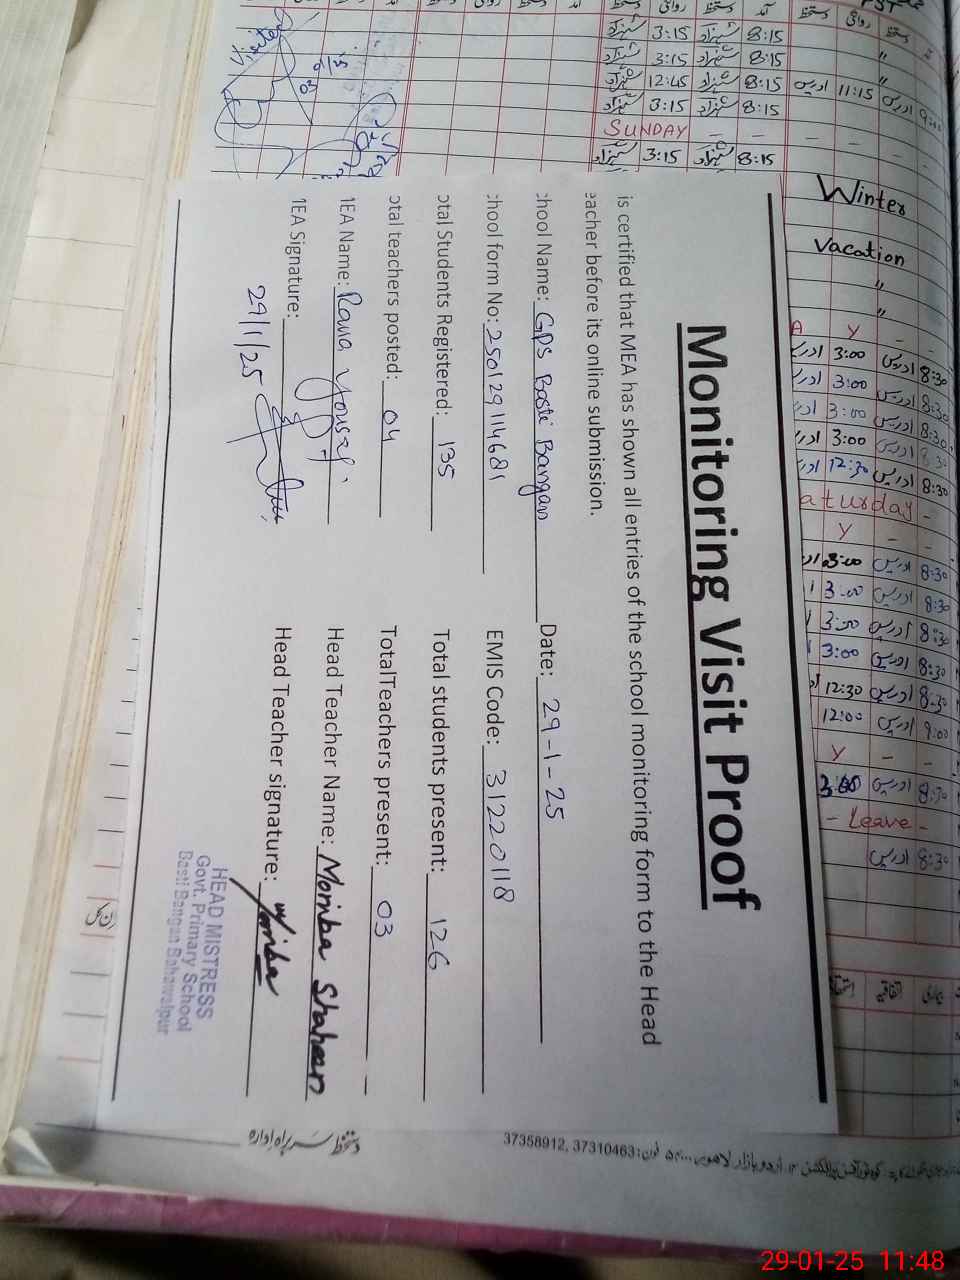 Monitoring Visit Proof
is certified that MEA has shown all entries of the school monitoring form to the Head
eacher before its online submission.
chool Name: GPS Basti Bangan Date: 29-1-25
chool form No: 2501291114681 EMIS Code: 31220118
otal Students Registered: 135 Total students present: 126
otal teachers posted: 04 TotalTeachers present: 03
MEA Name: Rana Yousaf. Head Teacher Name: Moniba Shaheen
MEA Signature: Head Teacher signature: Moniba
29/1/25
HEAD MISTRESS
Govt. Primary School
Basti Bangan Bahawalpur
Visited
3:15 8:15
3:15 8:15
12:45 8:15 11:15
3:15 8:15
SUNDAY - - - - -
3:15 8:15
Winter
Vacation
"
"
A Y - -
3:00 ادریس 8:30
3:00 ادریس 8:30
3:00 ادریس 8:30
3:00 ادریس 8:30
12:30 ادریس 8:30
aturday -
Y - -
3:00 ادریس 8:30
3:00 ادریس 8:30
3:00 ادریس 8:30
3:00 ادریس 8:30
12:30 ادریس 8:30
12:00 ادریس 9:00
Y - -
3:00 ادریس 8:30
- Leave -
ادریس 8:30
بیماری اتفاقیہ
دستخط سربراہ ادارہ
اردو بازار لاہور فون: 37310463, 37358912
29-01-25 11:48